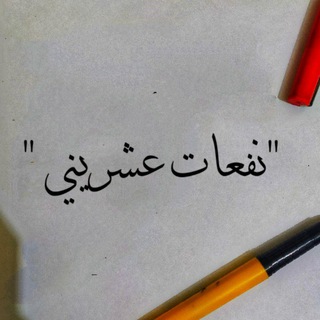 "نفعات عشريني"